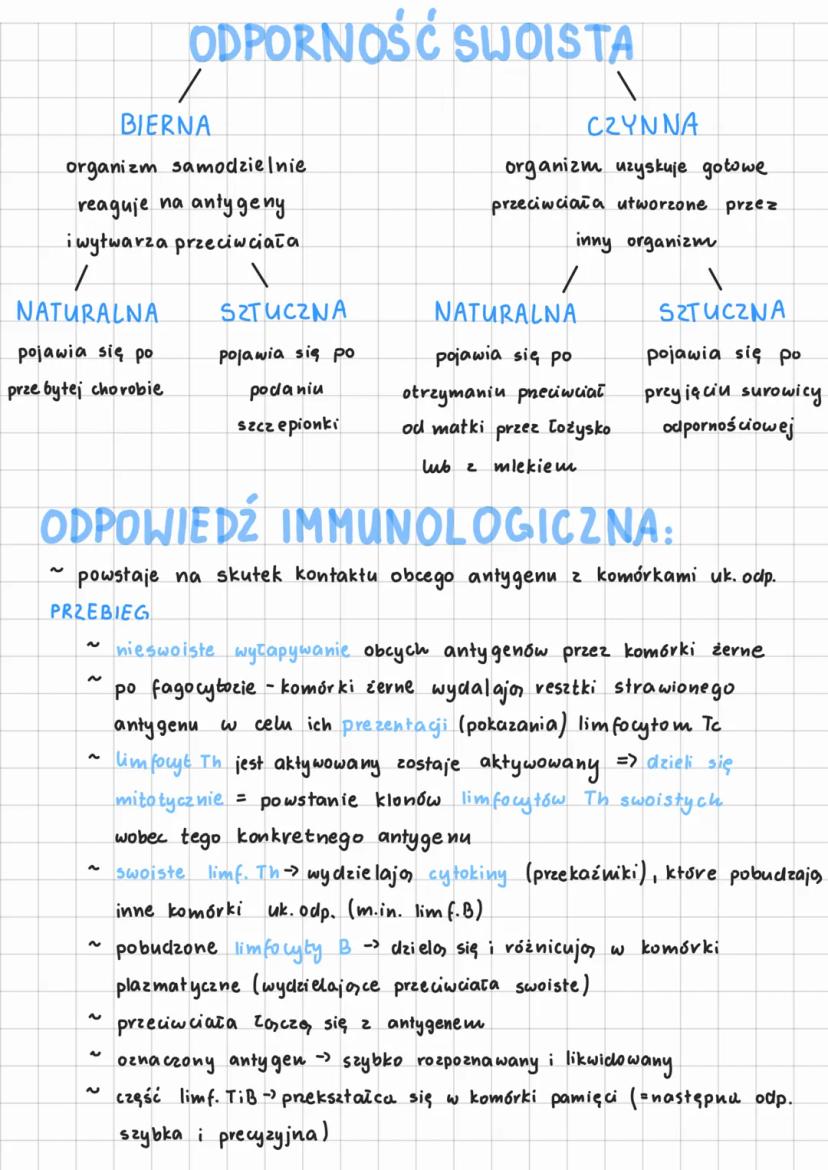 ODPORNOŚĆ SWOISTA
BIERNA
organizm samodzielnie
reaguje na antygeny
i wytwarza przeciwciała
CZYNNA
organizm uzyskuje gotowe
przeciwciała utworzone przez
inny organizm
NATURALNA
pojawia się po
przebytej chorobie
SZTUCZNA
pojawia się po
podaniu
szczepionki
NATURALNA
pojawia się po
otrzymaniu przeciwciał
od matki przez łożysko
lub z mlekiem
SZTUCZNA
pojawia się po
przyjęciu surowicy
odpornościowej
ODPOWIEDŹ IMMUNOLOGICZNA:
~ powstaje na skutek kontaktu obcego antygenu z komórkami uk. odp.
PRZEBIEG
~ nieswoiste wyłapywanie obcych antygenów przez komórki żerne
~ po fagocytozie - komórki żerne wydalają resztki strawionego
antygenu w celu ich prezentacji (pokazania) limfocytom Tc
~ limfocyt Th jest aktywowany zostaje aktywowany => dzieli się
mitotycznie = powstanie klonów limfocytów Th swoistych
wobec tego konkretnego antygenu
~ swoiste limf. Th -> wydzielają cytokiny (przekaźniki), które pobudzają
inne komórki uk. odp. (m.in. limf. B)
~ pobudzone limfocyty B -> dzielą się i różnicują w komórki
plazmatyczne (wydzielające przeciwciała swoiste)
~ przeciwciała łączą się z antygenem
~ oznaczony antygen -> szybko rozpoznawany i likwidowany
~ część limf. T i B -> przekształca się w komórki pamięci (= następna odp.
szybka i precyzyjna)